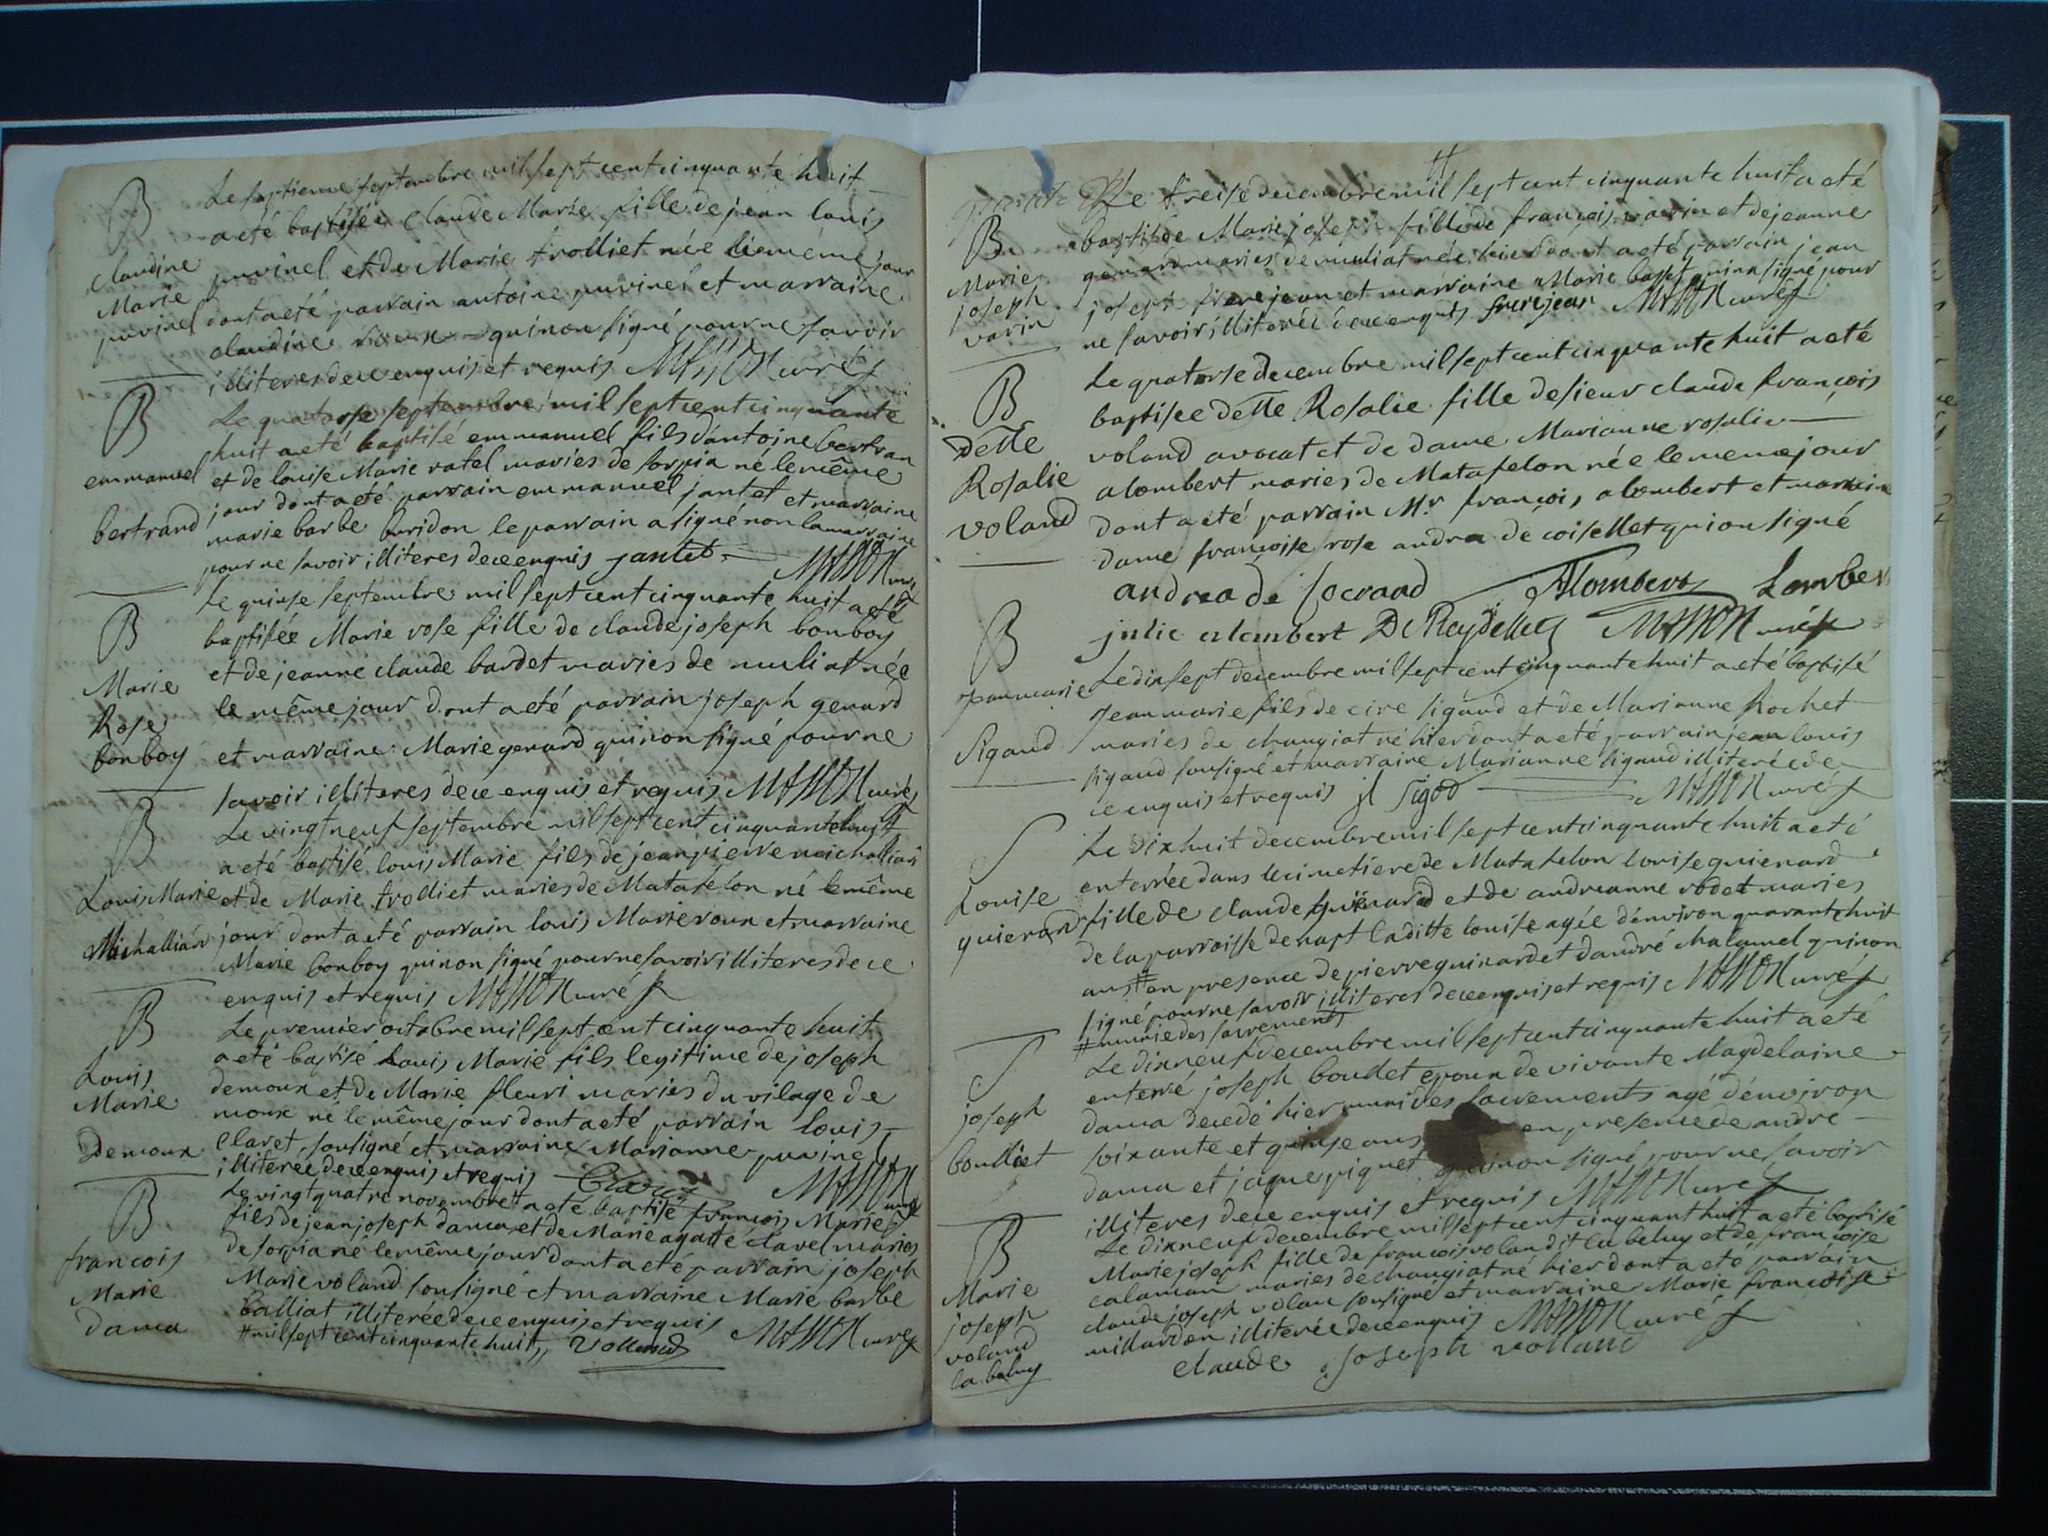 B
claudine
Marie
puvinel
Le septieme septembre mil sept cent cinquante huit
a eté baptisée claude Marie fille de jean louis
puvinel et de Marie trolliet née le même jour
dont a eté parrain antoine puvinel et marraine
claudine roux qui non signé pour ne savoir
illiteres de ce enquis et requis MASSON curé
B
emmanuel
bertrand
Le quatorse septembre mil sept cent cinquante
huit a eté baptisé emmanuel fils d'antoine bertran
et de louise Marie ratel mariés de sorpia né le même
jour dont a eté parrain emmanuel jantet et marraine
marie barbe buridon le parrain a signé non la marraine
pour ne savoir illiteres de ce enquis jantet MASSON curé
B
Marie
Rose
bonboy
Le quinse septembre mil sept cent cinquante huit a eté
baptisée Marie rose fille de claude joseph bonboy
et de jeanne claude bardet mariés de muliat née
le même jour dont a eté parrain joseph genard
et marraine Marie genard qui non signé pour ne
savoir illiteres de ce enquis et requis MASSON curé
B
Louis Marie
Michalliard
Le vingt neuf septembre mil sept cent cinquante huit
a eté baptisé louis Marie fils de jean pierre michalliard
et de Marie trolliet mariés de Matafelon né le même
jour dont a eté parrain louis Marie roux et marraine
Marie bonboy qui non signé pour ne savoir illiteres de ce
enquis et requis MASSON curé
B
Louis
Marie
Demoux
Le premier octobre mil sept cent cinquante huit
a eté baptisé Louis Marie fils legitime de joseph
demoux et de Marie fleuri mariés du vilage de
moux né le même jour dont a eté parrain louis
Claret, sousigné et marraine Marianne puvinel
illiterée de ce enquis et requis MASSON curé
B
françois
Marie
dama
Le vingt quatre novembre # a eté baptisé françois Marie
fils de jean joseph dama et de Marie agatte clavel mariés
de sorpia né le même jour dont a eté parrain joseph
Marie voland sousigné et marraine Marie barbe
balliat illiterée de ce enquis et requis MASSON curé
# mil sept cent cinquante huit, Volland
B
Marie
joseph
varin
Le treise decembre mil sept cent cinquante huit a eté
baptisée Marie joseph fille de françois varin et de jeanne
genard mariés de muliat née hier dont a eté parrain jean
joseph frerejean et marraine Marie basset qui na signé pour
ne savoir illiterée de ce enquis frerejean MASSON curé
B
Delle
Rosalie
voland
Le quatorse decembre mil sept cent cinquante huit a eté
baptisée delle Rosalie fille de sieur claude françois
voland avocat et de dame Marianne rosalie
alombert mariés de Matafelon née le meme jour
dont a eté parrain Mr. françois alombert et marraine
dame françoise rose andrea de coisellet qui on signé
andrea de socraad Alombert Lombert
julie alombert De Reydellet MASSON curé
B
jean marie
Sigaud
Le dix sept decembre mil sept cent cinquante huit a eté baptisé
jean marie fils de cire sigaud et de Marianne Rochet
mariés de changiat né hier dont a eté parrain jean louis
sigaud sousigné et marraine Marianne sigaud illiterée de
ce enquis et requis jl sigod MASSON curé
S
Louise
quienard
Le dix huit decembre mil sept cent cinquante huit a eté
enterrée dans le cimetiere de Matafelon louise quienard
fille de claude quienard et de andreanne rodet mariés
de la parroisse de napt ladite louise agée d'environ quarante huit
ans # en presence de pierre quinard et d'andré chalamel qui non
signé pour ne savoir illiteres de ce enquis et requis MASSON curé
# munie des sacrements
S
joseph
boullet
Le dix neuf decembre mil sept cent cinquante huit a eté
enterré joseph boullet epoux de vivante Magdelaine
dama decedé hier muni des sacrements agé d'environ
soixante et quinse ans en presence de andre
dama et jaque piquet qui non signé pour ne savoir
illiteres de ce enquis et requis MASSON curé
B
Marie
joseph
voland
la beluy
Le dix neuf decembre mil sept cent cinquant huit a eté baptisé
Marie joseph fille de françois voland dit la beluy et de françoise
calaman mariés de changiat né hier dont a eté parrain
claude joseph volan sousigné et marraine Marie françoise
millardon illiterée de ce enquis MASSON curé
claude joseph volland